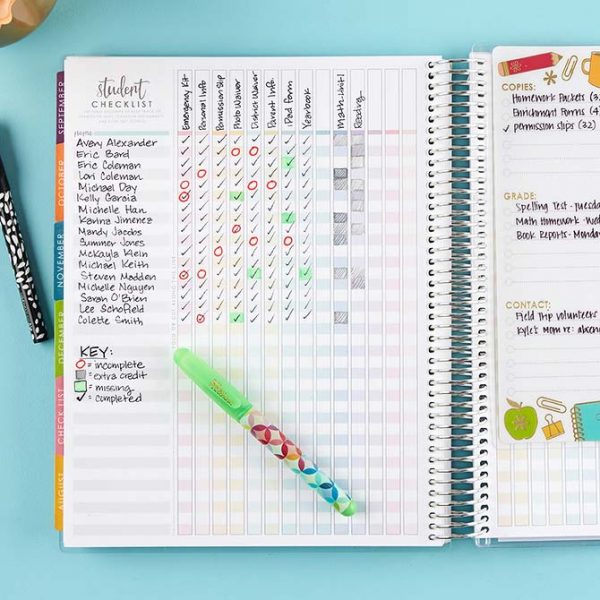 student
CHECKLIST
Emergency Kit
Personal Info
Permission Slip
Photo Waiver
District Waiver
Parent Info
iPad Form
Yearbook
Math-Unit 1
Reading
names
Avery Alexander
Eric Bard
Eric Coleman
Lori Coleman
Michael Day
Kelly Garcia
Michelle Han
Karina Jimenez
Mandy Jacobs
Summer Jones
McKayla Klein
Michael Keith
Steven Madden
Michelle Nguyen
Sarah O'Brien
Lee Schofield
Colette Smith
KEY:
= incomplete
= extra credit
= missing
= completed
SEPTEMBER
OCTOBER
NOVEMBER
DECEMBER
CHECK LIST
AUGUST
COPIES:
Homework Packets
Enrichment Forms (4
permission slips (22)
GRADE:
Spelling Test - Tuesda
Math Homework - Wed
Book Reports - Monda
CONTACT:
Field Trip Volunteers
Kyle's Mom re: